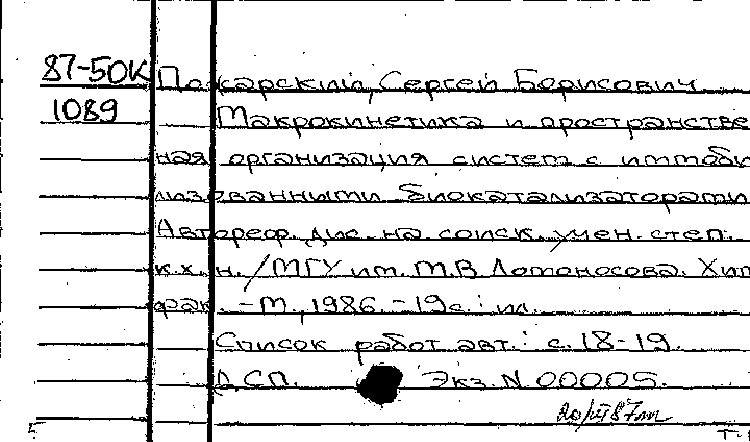 87-50К Пожарский, Сергей Борисович
1089 Макрокинетика и пространствен
ная организация систем с иммоби
лизованными биокатализаторами
Автореф. дис. на соиск. учен. степ.
к.х.н. / МГУ им. М.В Ломоносова. Хим
фак. - М., 1986. - 19 с.: ил.
Список работ авт.: с. 18-19.
ДСП. Экз. N 00005.